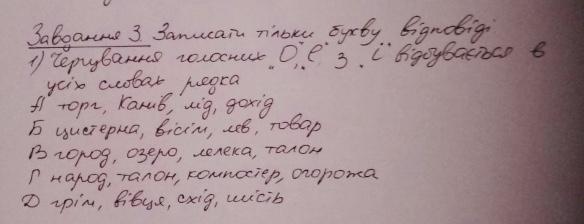 Завдання 3. Записати тільки букву відповіді
1) Чергування голосних "О", "е" з "і" відбувається в
усіх словах рядка
А торг, Канів, лід, дохід
Б цистерна, вісім, лев, товар
В город, озеро, лелека, талон
Г народ, талон, компостер, огорожа
Д грім, вівця, схід, шість